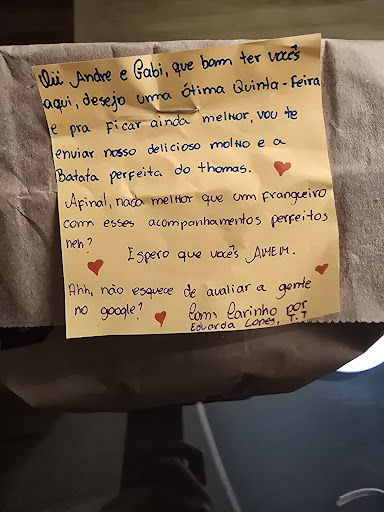 Oii Andre e Gabi, que bom ter vocês
aqui, desejo uma ótima Quinta-Feira
e pra ficar ainda melhor, vou te
enviar nosso delicioso molho e a
Batata perfeita do thomas.
Afinal, nada melhor que um frangueiro
com esses acompanhamentos perfeitos
neh?
Espero que vocês AMEM.
Ahh, não esquece de avaliar a gente
no google?
Com Carinho por
Eduarda Lopes, T.J